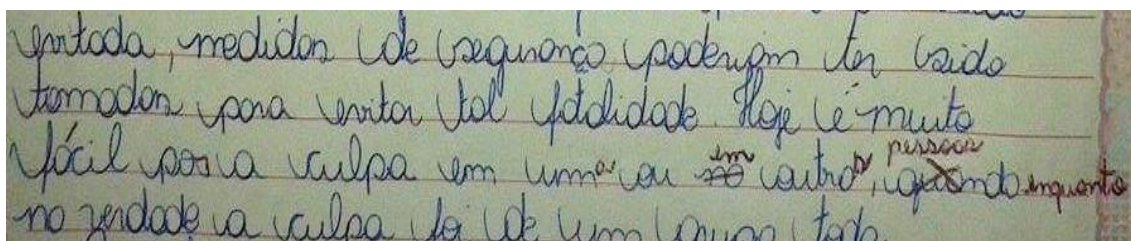 evitada, medidas de segurança poderiam ter sido
tomadas para evitar tal fatalidade. Hoje é muito
fácil por a culpa em uma ou em outra pessoa, enquanto
na verdade a culpa foi de um grupo todo